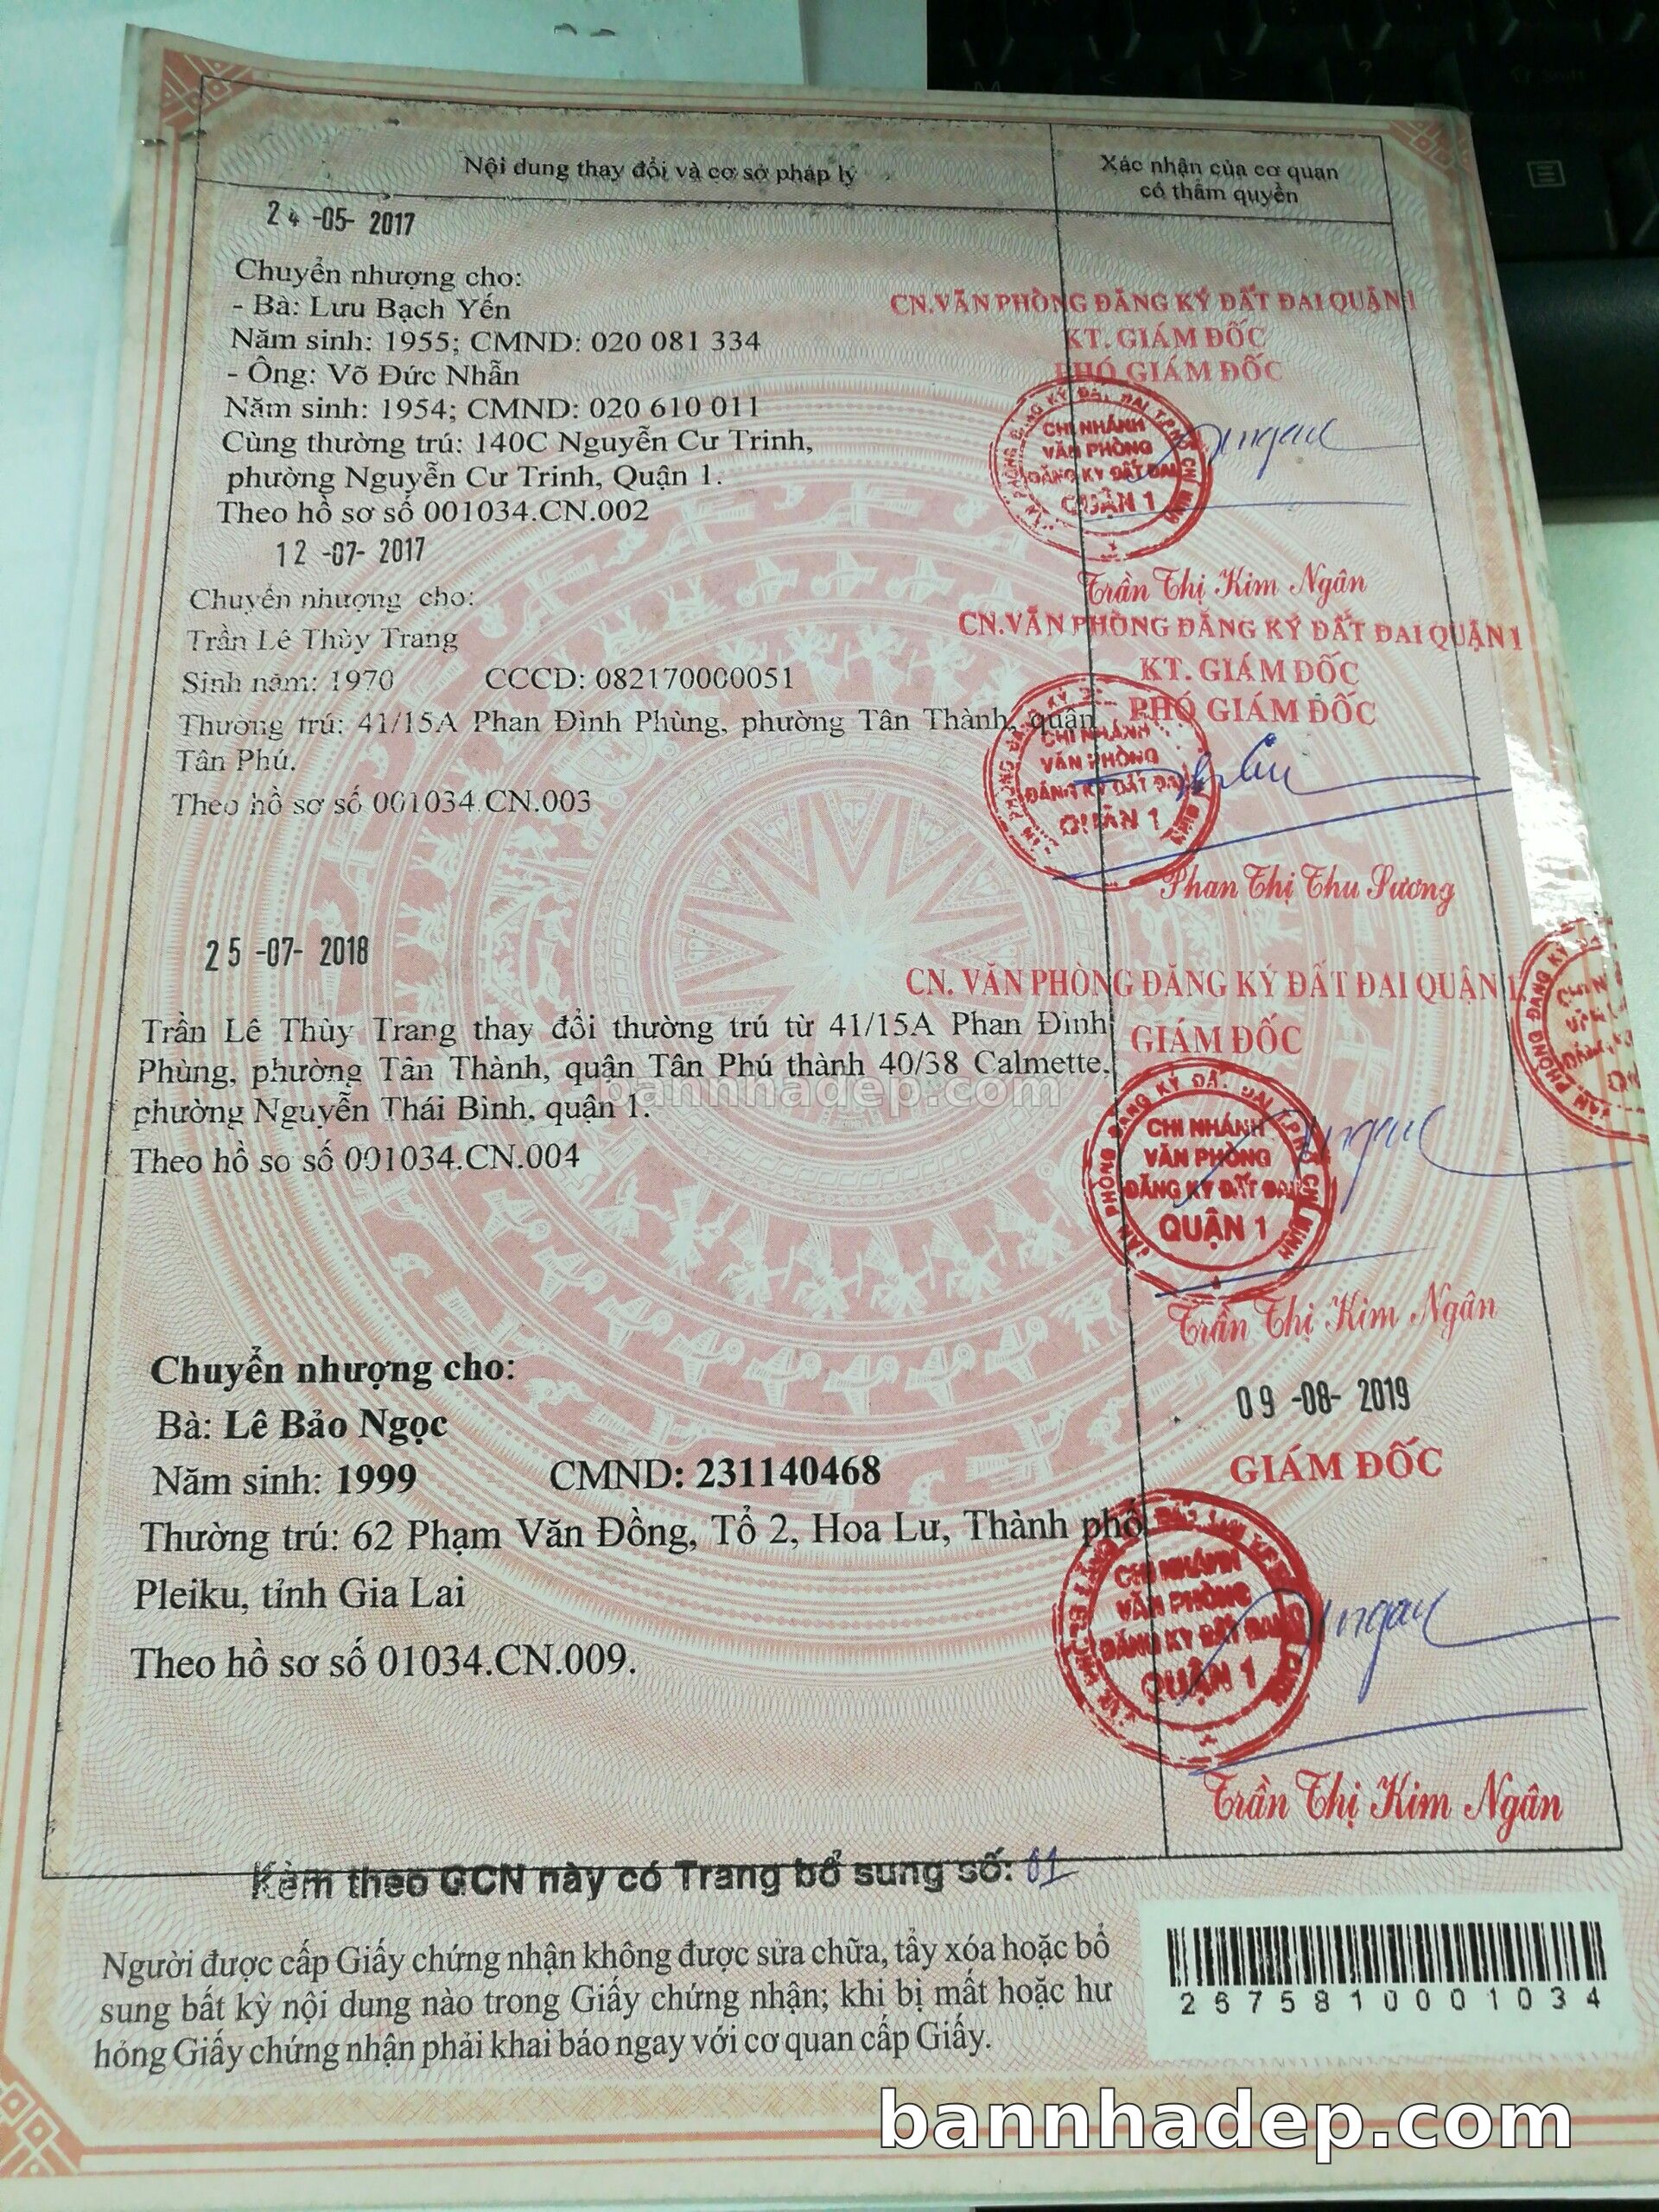 Nội dung thay đổi và cơ sở pháp lý
Xác nhận của cơ quan
có thẩm quyền
24 -05- 2017
Chuyển nhượng cho:
- Bà: Lưu Bạch Yến
Năm sinh: 1955; CMND: 020 081 334
- Ông: Võ Đức Nhẫn
Năm sinh: 1954; CMND: 020 610 011
Cùng thường trú: 140C Nguyễn Cư Trinh,
phường Nguyễn Cư Trinh, Quận 1.
Theo hồ sơ số 001034.CN.002
CN.VĂN PHÒNG ĐĂNG KÝ ĐẤT ĐAI QUẬN 1
KT. GIÁM ĐỐC
PHÓ GIÁM ĐỐC
CHI NHÁNH
VĂN PHÒNG
ĐĂNG KÝ ĐẤT ĐAI
QUẬN 1
Trần Thị Kim Ngân
12 -07- 2017
Chuyển nhượng cho:
Trần Lê Thùy Trang
Sinh năm: 1970 CCCD: 082170000051
Thường trú: 41/15A Phan Đình Phùng, phường Tân Thành, quận
Tân Phú.
Theo hồ sơ số 001034.CN.003
CN.VĂN PHÒNG ĐĂNG KÝ ĐẤT ĐAI QUẬN 1
KT. GIÁM ĐỐC
PHÓ GIÁM ĐỐC
CHI NHÁNH
VĂN PHÒNG
ĐĂNG KÝ ĐẤT ĐAI
QUẬN 1
Phan Thị Thu Sương
25 -07- 2018
Trần Lê Thùy Trang thay đổi thường trú từ 41/15A Phan Đình
Phùng, phường Tân Thành, quận Tân Phú thành 40/38 Calmette,
phường Nguyễn Thái Bình, quận 1.
Theo hồ sơ số 001034.CN.004
CN. VĂN PHÒNG ĐĂNG KÝ ĐẤT ĐAI QUẬN 1
GIÁM ĐỐC
CHI NHÁNH
VĂN PHÒNG
ĐĂNG KÝ ĐẤT ĐAI
QUẬN 1
Trần Thị Kim Ngân
bannhadep.com
Chuyển nhượng cho:
Bà: Lê Bảo Ngọc
Năm sinh: 1999 CMND: 231140468
Thường trú: 62 Phạm Văn Đồng, Tổ 2, Hoa Lư, Thành phố
Pleiku, tỉnh Gia Lai
Theo hồ sơ số 01034.CN.009.
09 -08- 2019
GIÁM ĐỐC
CHI NHÁNH
VĂN PHÒNG
ĐĂNG KÝ ĐẤT ĐAI
QUẬN 1
Trần Thị Kim Ngân
Kèm theo GCN này có Trang bổ sung số: 01
Người được cấp Giấy chứng nhận không được sửa chữa, tẩy xóa hoặc bổ
sung bất kỳ nội dung nào trong Giấy chứng nhận; khi bị mất hoặc hư
hỏng Giấy chứng nhận phải khai báo ngay với cơ quan cấp Giấy.
2675810001034
bannhadep.com